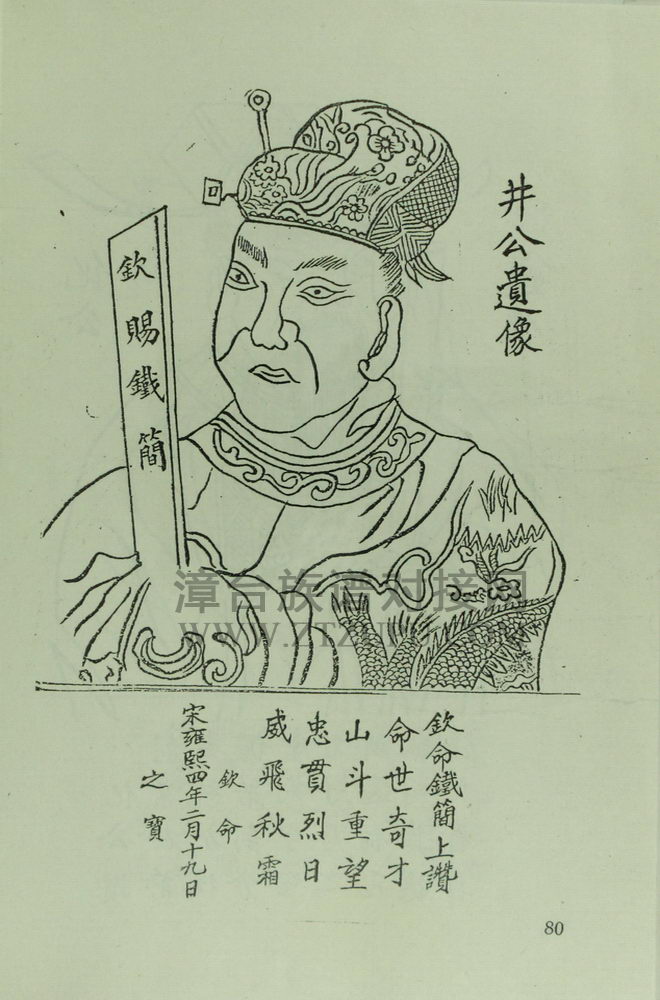 井公遺像
欽賜鐵簡
欽命鐵簡上讚
命世奇才
山斗重望
忠貫烈日
威飛秋霜
欽命
宋雍熙四年二月十九日
之寶
漳台族谱对接网
80